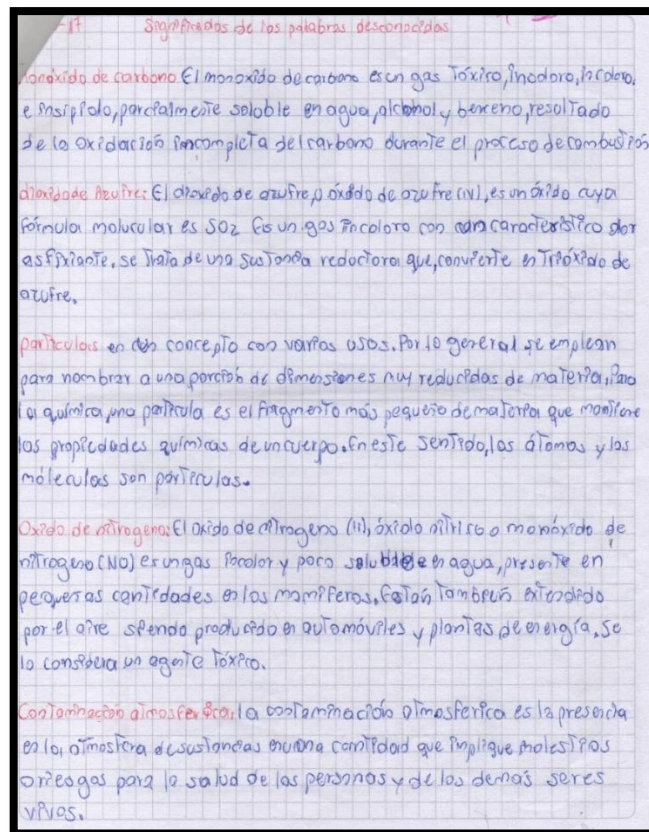 -17 Significados de las palabras desconocidas
onóxido de carbono El monoxido de carbono es un gas Tóxico, inodoro, incoloro,
e insipido, parcialmente soluble en agua, alcohol y benceno, resulTado
de la oxidación incompleTa del carbono durante el proceso de combustión
dioxido de Azufre: El dioxido de azufre, o óxido de azufre (IV), es un óxido cuya
fórmula molucular es SO2 Es un gas incoloro con caracteristico olor
asfixianTe, se TraTa de una susTancia reductora que, convierte en Trióxido de
azufre.
parTiculas en concepTo con varios usos. Por lo general se emplean
para nombrar a una porción de dimensiones muy reducidas de maTeria, Para
la química, una partícula es el fragmenTo más pequeño de maTeria que manTiene
las propiedades químicas de un cuerpo. En esTe senTido, los áTomos y las
móleculas son parTiculas.
Oxido de niTrogeno: El oxido de niTrogeno (II), óxido níTrico o monóxido de
niTrogeno (NO) es un gas incolor y poco soluble en agua, presenTe en
pequeñas canTidades en los mamíferos, EsTán Tambien exTendido
por el aire siendo producido en auTomóviles y planTas de energía, Se
lo considera un agenTe Tóxico.
ConTaminación aTmosferica: la conTaminación aTmosferica es la presencia
en la aTmosfera de susTancias en una canTidad que implique molesTias
o riesgos para la salud de las personas y de los demás seres
vivos.